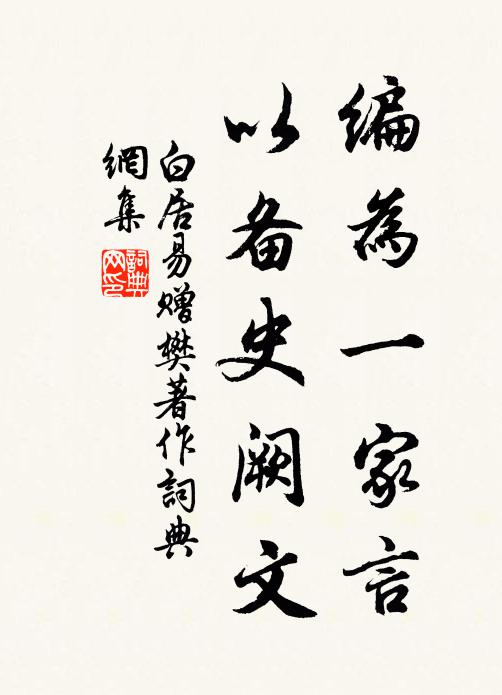 编為一家言
以备史阙文
白居易赠樊著作詞典
網集
詞典
网印